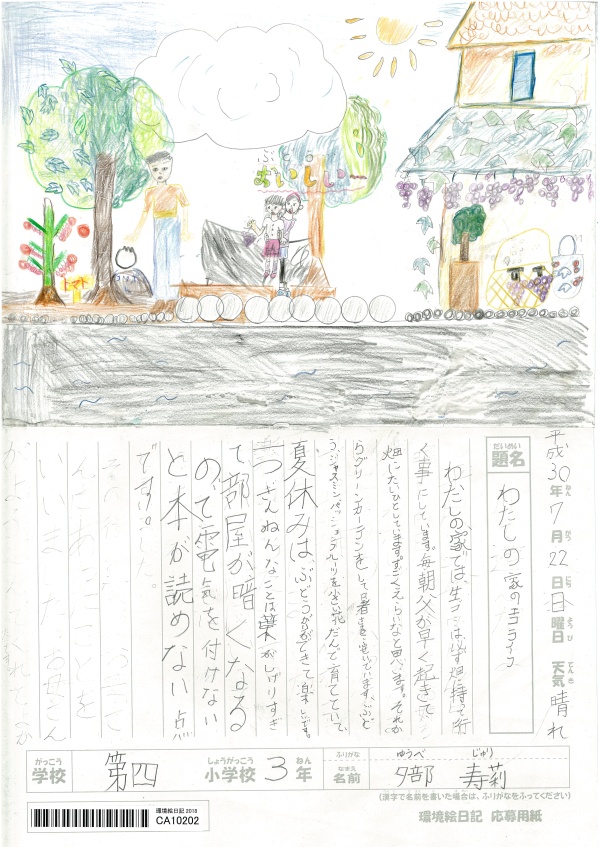 ぶどう
おいしい
トマト
平成30年7月22日日曜日 天気晴れ
ねん がつ にち ようび てんき
だいめい
題名
わたしの家のエコライフ
わたしの家では、生ゴミは必ず畑に持って行
く事にしています。毎朝父が早く起きて
畑にたいひとしています。すごくえらいなと思います。それか
らグリーンカーテンをして暑さを
ジャスミン、パッションフルーツを小さい花だんで育てていて、
夏休みは、ぶどうがりができて楽しいです。
一つざんねんなことは葉がしげりすぎ
て部屋が暗くなる
ので電気を付けない
と本が読めない点
です。
がっこう
学校
第四
しょうがっこう
小学校
3
ねん
年
ふりがな
なまえ
名前
ゆうべ じゅり
夕部 寿莉
(漢字で名前を書いた場合は、ふりがなをふってください)
環境絵日記 2018
CA10202
環境絵日記 応募用紙